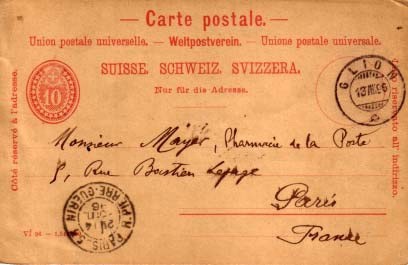 — Carte postale. —
Union postale universelle. — Weltpostverein. — Unione postale universale.
SUISSE. SCHWEIZ. SVIZZERA.
Nur für die Adresse.
Côté réservé à l'adresse.
10
GLION
Lato riservato all' indirizzo.
Monsieur Mayer, Pharmacie de la Poste
5, Rue Bastien Lepage
Paris
France
PARIS
PIERRE-GUERIN